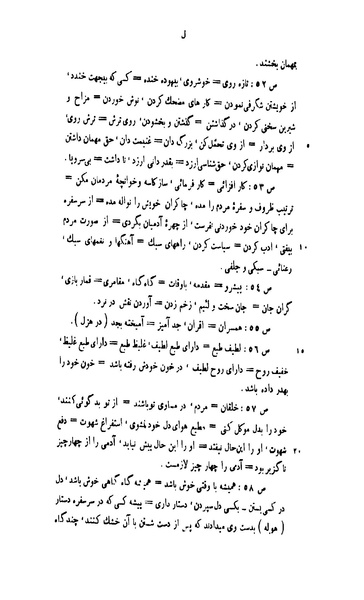 ل
بمهمان بخشند .
ص ۵۲ : تازه روی = خوشروی ، بیهوده خنده = کسی که بیجهت خندد ،
از خویشتن شگرفی نمودن = کار های مضحک کردن ، نوش خوردن = مزاح و
شیرین سخنی کردن ، در گذاشتن = گذشتن و بخشودن ، روی ترش = ترش روی ،
۵ از وی بردار = از وی تحمل کن ، بزرگ دان = غنیمت دان ، حق مهمان داشتن
= مهمان نوازی کردن ، حق شناسی ارزد = بقدر دانی ارزد ، نا داشت = بی سر و پا .
ص ۵۳ : کار افزائی = کار فرمائی ، ساز کاسه و خوانچهٔ مردمان مکن =
ترتیب ظروف و سفرهٔ مردم را مده ، چاکران خویش را نواله مده = از سر سفره
برای چاکران خود خوردنی نفرست ، از چهرهٔ آدمیان بگردی = از صورت مردم
۱۰ بیفتی ، ادب کردن = سیاست کردن ، راههای سبک = آهنگها و نغمهای سبک ،
رعنائی = سبکی و جلفی .
ص ۵۴ : پیشرو = مقدمه ، باوقات = گاه گاه ، مقامری = قمار بازی ،
گران جان = جان سخت و لئیم ، زخم زدن = آوردن نقش در نرد .
ص ۵۵ : همسران = اقران ، جد آمیز = آمیخته بجد ( در هزل ) .
۱۵ ص ۵۶ : لطیف طبع = دارای طبع لطیف ، غلیظ طبع = دارای طبع غلیظ ،
خفیف روح = دارای روح لطیف ، در خون خودش رفته باشد = خون خود را
بهدر داده باشد .
ص ۵۷ : خلقان = مردم ، در مساوی تو باشند = از تو بد گوئی کنند ،
خود را بدل موکل کنی = مطیع هوای دل خود نشوی ، استفراغ شهوت = دفع
۲۰ شهوت ، او را این حال نیفتد = او را این حال پیش نیاید ، آدمی را از چهار چیز
ناگزیر بود = آدمی را چهار چیز لازمست .
ص ۵۸ : همیشه با وقتی خوش باشد = همیشه گاه گاهی خوش باشد ، دل
در کسی بستن = بکسی دل سپردن ، دستار داری = پیشه کسی که در سر سفره دستار
( هوله ) بدست وی میدادند که پس از دست شستن با آن خشک کنند ، چند گاه